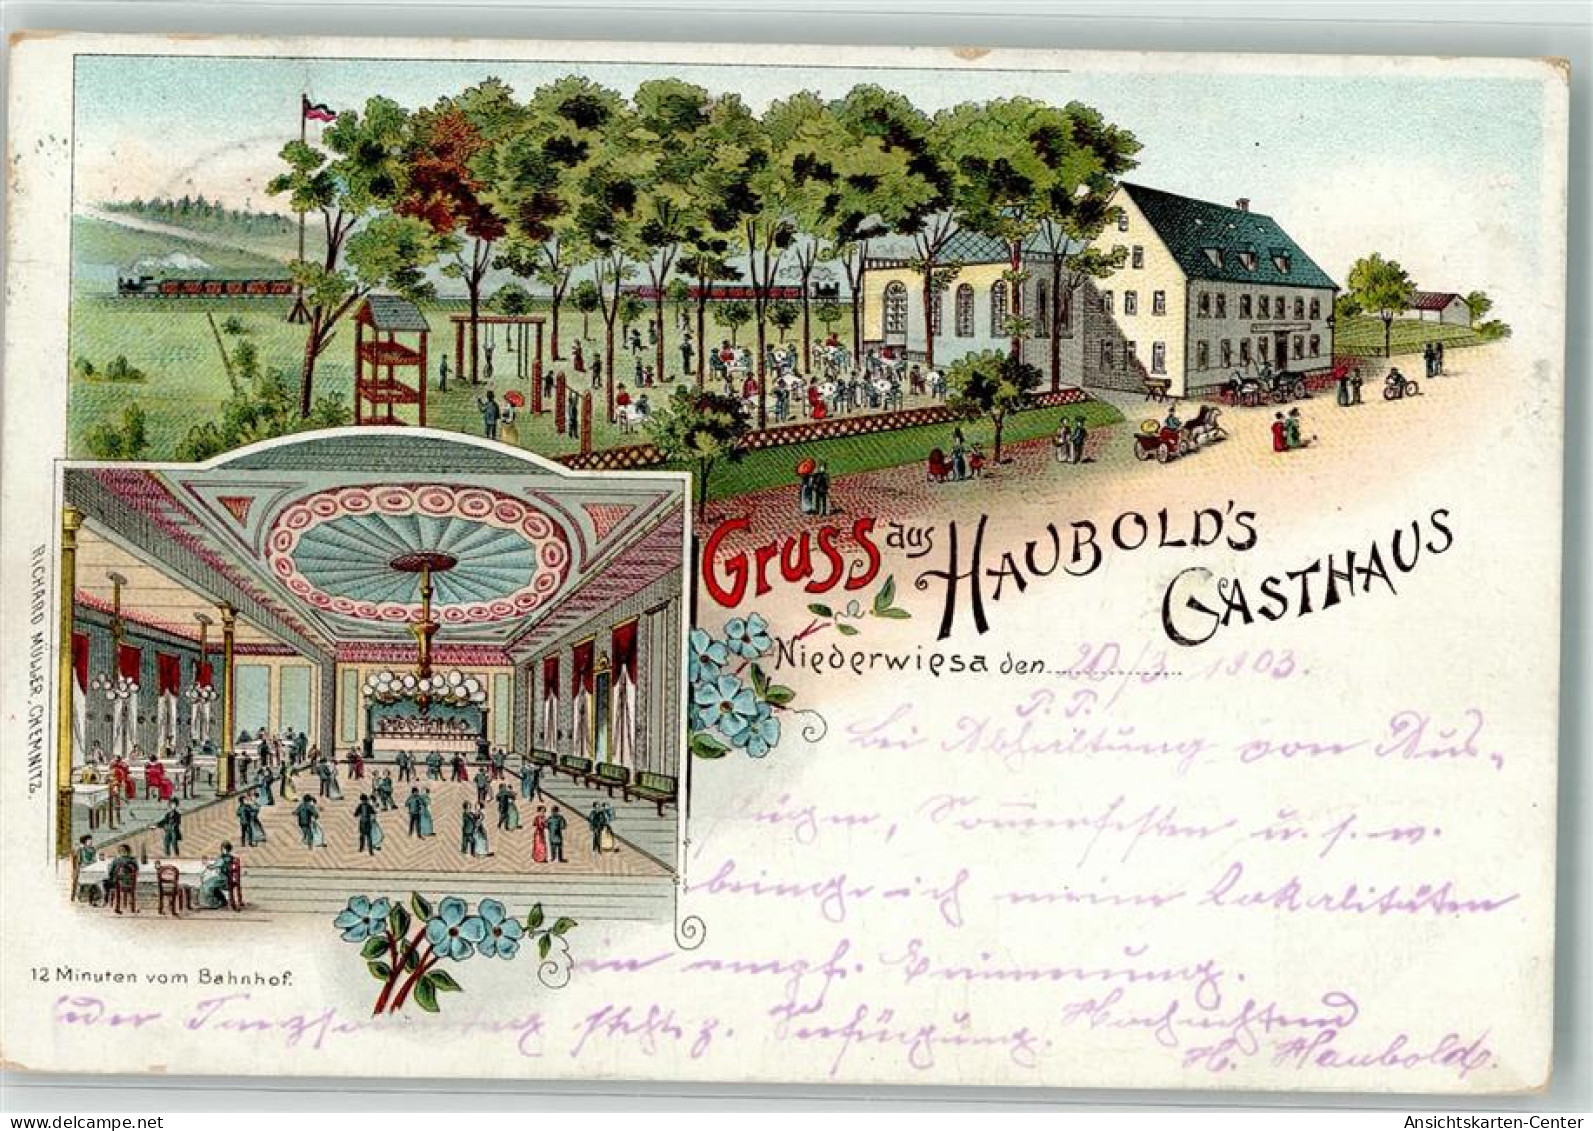 Gruss aus HAUBOLD'S
GASTHAUS
Niederwiesa den 20/3. 1903.
P. P.
Bei Abhaltung von Aus-
flügen, Sommerfesten u. s. w.
bringe ich meine Lokalitäten
in empf. Erinnerung.
Jeder Tanzsonntag steht z. Verfügung.
Hochachtend
H. Haubold.
12 Minuten vom Bahnhof.
RICHARD MÜLLER, CHEMNITZ.
www.delcampe.net
Ansichtskarten-Center